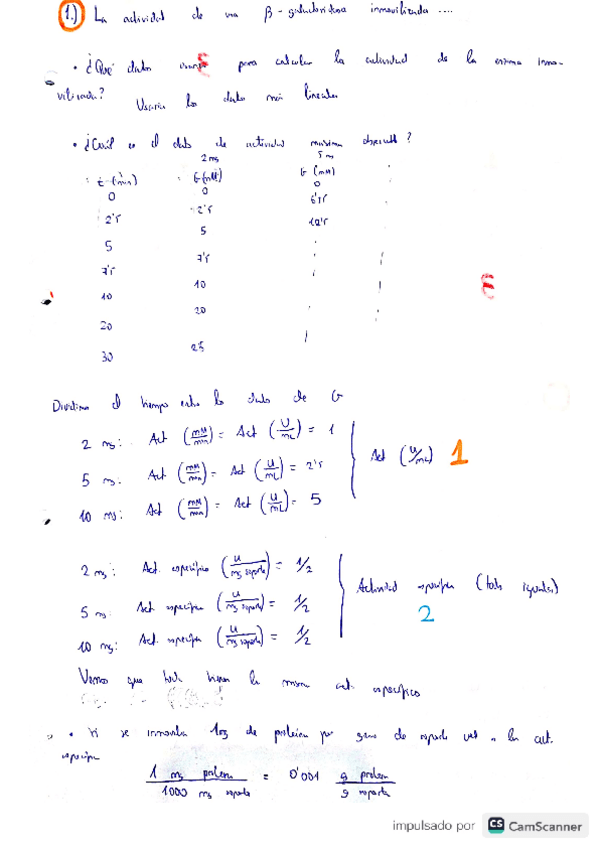 1.) La actividad de una β-galactosidasa inmovilizada ....
• ¿Qué datos para calcular la actividad de la enzima inmo-
vilizada? Usaría los datos más lineales
• ¿Cuál es el dato de actividad máxima observada?
2 mg 5 mg
t (min) G (mM) G (mM)
0 0 0
2'5 2'5 6'25
5 5
7'5 7'5
10 10
20 20
30 25
el tiempo entre los datos de G
2 mg: Act (mM/min) = Act (U/mL) = 1
5 mg: Act (mM/min) = Act (U/mL) = 2'5
10 mg: Act (mM/min) = Act (U/mL) = 5
Act (U/mL) 1
2 mg: Act. específica (U/mg soporte) = 1/2
5 mg: Act específica (U/mg soporte) = 1/2
10 mg: Act. específica (U/mg soporte) = 1/2
Actividad específica (todas iguales)
2
Vemos que todas tienen la misma act. específica
• Si se inmoviliza 1mg de proteína por gramo de soporte la act.
específica
1 mg proteína / 1000 mg soporte = 0'001 g proteína / g soporte
impulsado por CS CamScanner